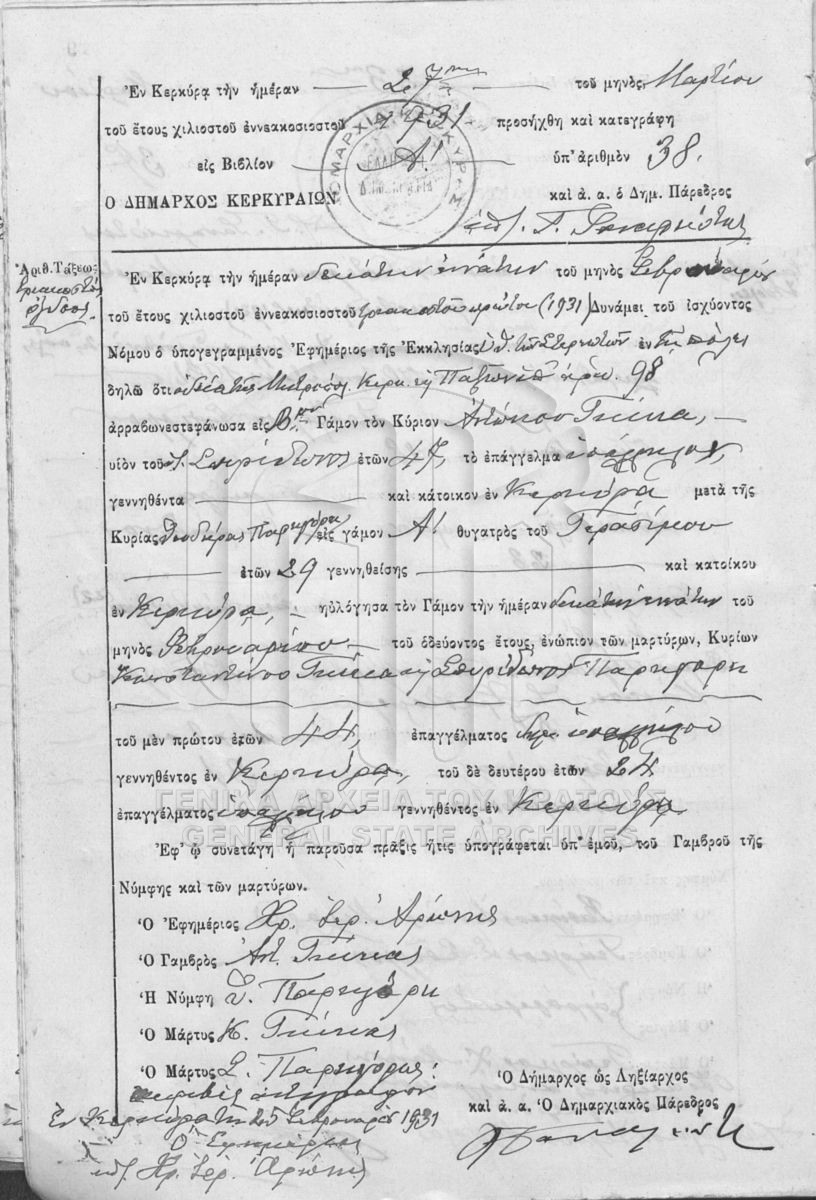 Ἐν Κερκύρᾳ τὴν ἡμέραν 27ην τοῦ μηνὸς Μαρτίου
τοῦ ἔτους χιλιοστοῦ ἐννεακοσιοστοῦ 1931 προσήχθη καὶ κατεγράφη
εἰς Βιβλίον Α! ὑπ᾽ ἀριθμὸν 38.
Ο ΔΗΜΑΡΧΟΣ ΚΕΡΚΥΡΑΙΩΝ καὶ ἀ. α. ὁ Δημ. Πάρεδρος
ὑπ. Γ.
Ἀριθ. Τάξεως
τριακοστὸς
ὄγδοος.
Ἐν Κερκύρᾳ τὴν ἡμέραν δεκάτην ἐνάτην τοῦ μηνὸς Φεβρουαρίου
τοῦ ἔτους χιλιοστοῦ ἐννεακοσιοστοῦ τριακοστοῦ πρώτου (1931) Δυνάμει τοῦ ἰσχύοντος
Νόμου ὁ ὑπογεγραμμένος Ἐφημέριος τῆς Ἐκκλησίας τῶν ἐν τῇ πόλει
δηλῶ ὅτι ἀδείᾳ τῆς Μητροπόλ. Κερκ. καὶ Παξῶν ὑπ᾽ ἀριθ. 98
ἀρραβωνεστεφάνωσα εἰς Β. Γάμον τὸν Κύριον Ἀντώνιον Γκίκα,
υἱὸν τοῦ Σπυρίδωνος ἐτῶν 47, τὸ ἐπάγγελμα ὑπάλληλον,
γεννηθέντα καὶ κάτοικον ἐν Κερκύρᾳ μετὰ τῆς
Κυρίας Θεοδώρας Παρηγόρη εἰς γάμον Α! θυγατρὸς τοῦ Γερασίμου
ἐτῶν 29 γεννηθείσης καὶ κατοίκου
ἐν Κερκύρᾳ, ηὐλόγησα τὸν Γάμον τὴν ἡμέραν δεκάτην ἐνάτην τοῦ
μηνὸς Φεβρουαρίου τοῦ ὁδεύοντος ἔτους, ἐνώπιον τῶν μαρτύρων, Κυρίων
Κωνσταντίνου Γκίκα καὶ Σπυρίδωνος Παρηγόρη
τοῦ μὲν πρώτου ἐτῶν 44, ἐπαγγέλματος δημ. ὑπαλλήλου
γεννηθέντος ἐν Κερκύρᾳ, τοῦ δὲ δευτέρου ἐτῶν 24
ἐπαγγέλματος ὑπαλλήλου γεννηθέντος ἐν Κερκύρᾳ
ΓΕΝΙΚΑ ΑΡΧΕΙΑ ΤΟΥ ΚΡΑΤΟΥΣ
GENERAL STATE ARCHIVES
Ἐφ᾽ ᾧ συνετάγη ἡ παροῦσα πρᾶξις ἥτις ὑπογράφεται ὑπ᾽ ἐμοῦ, τοῦ Γαμβροῦ τῆς
Νύμφης καὶ τῶν μαρτύρων.
Ὁ Ἐφημέριος Χρ. Ἱερ. Ἀρώνης
Ὁ Γαμβρὸς Ἀντ. Γκίκας
Ἡ Νύμφη Θ. Παρηγόρη
Ὁ Μάρτυς Κ. Γκίκας
Ὁ Μάρτυς Σ. Παρηγόρης
Ὁ Δήμαρχος ὡς Ληξίαρχος
ἀκριβὲς ἀντίγραφον
καὶ ἀ. α. Ὁ Δημαρχιακὸς Πάρεδρος
Ἐν Κερκύρᾳ τῇ Φεβρουαρίου 1931
Ὁ Ἐφημέριος
ὑπ. Χρ. Ἱερ. Ἀρώνης